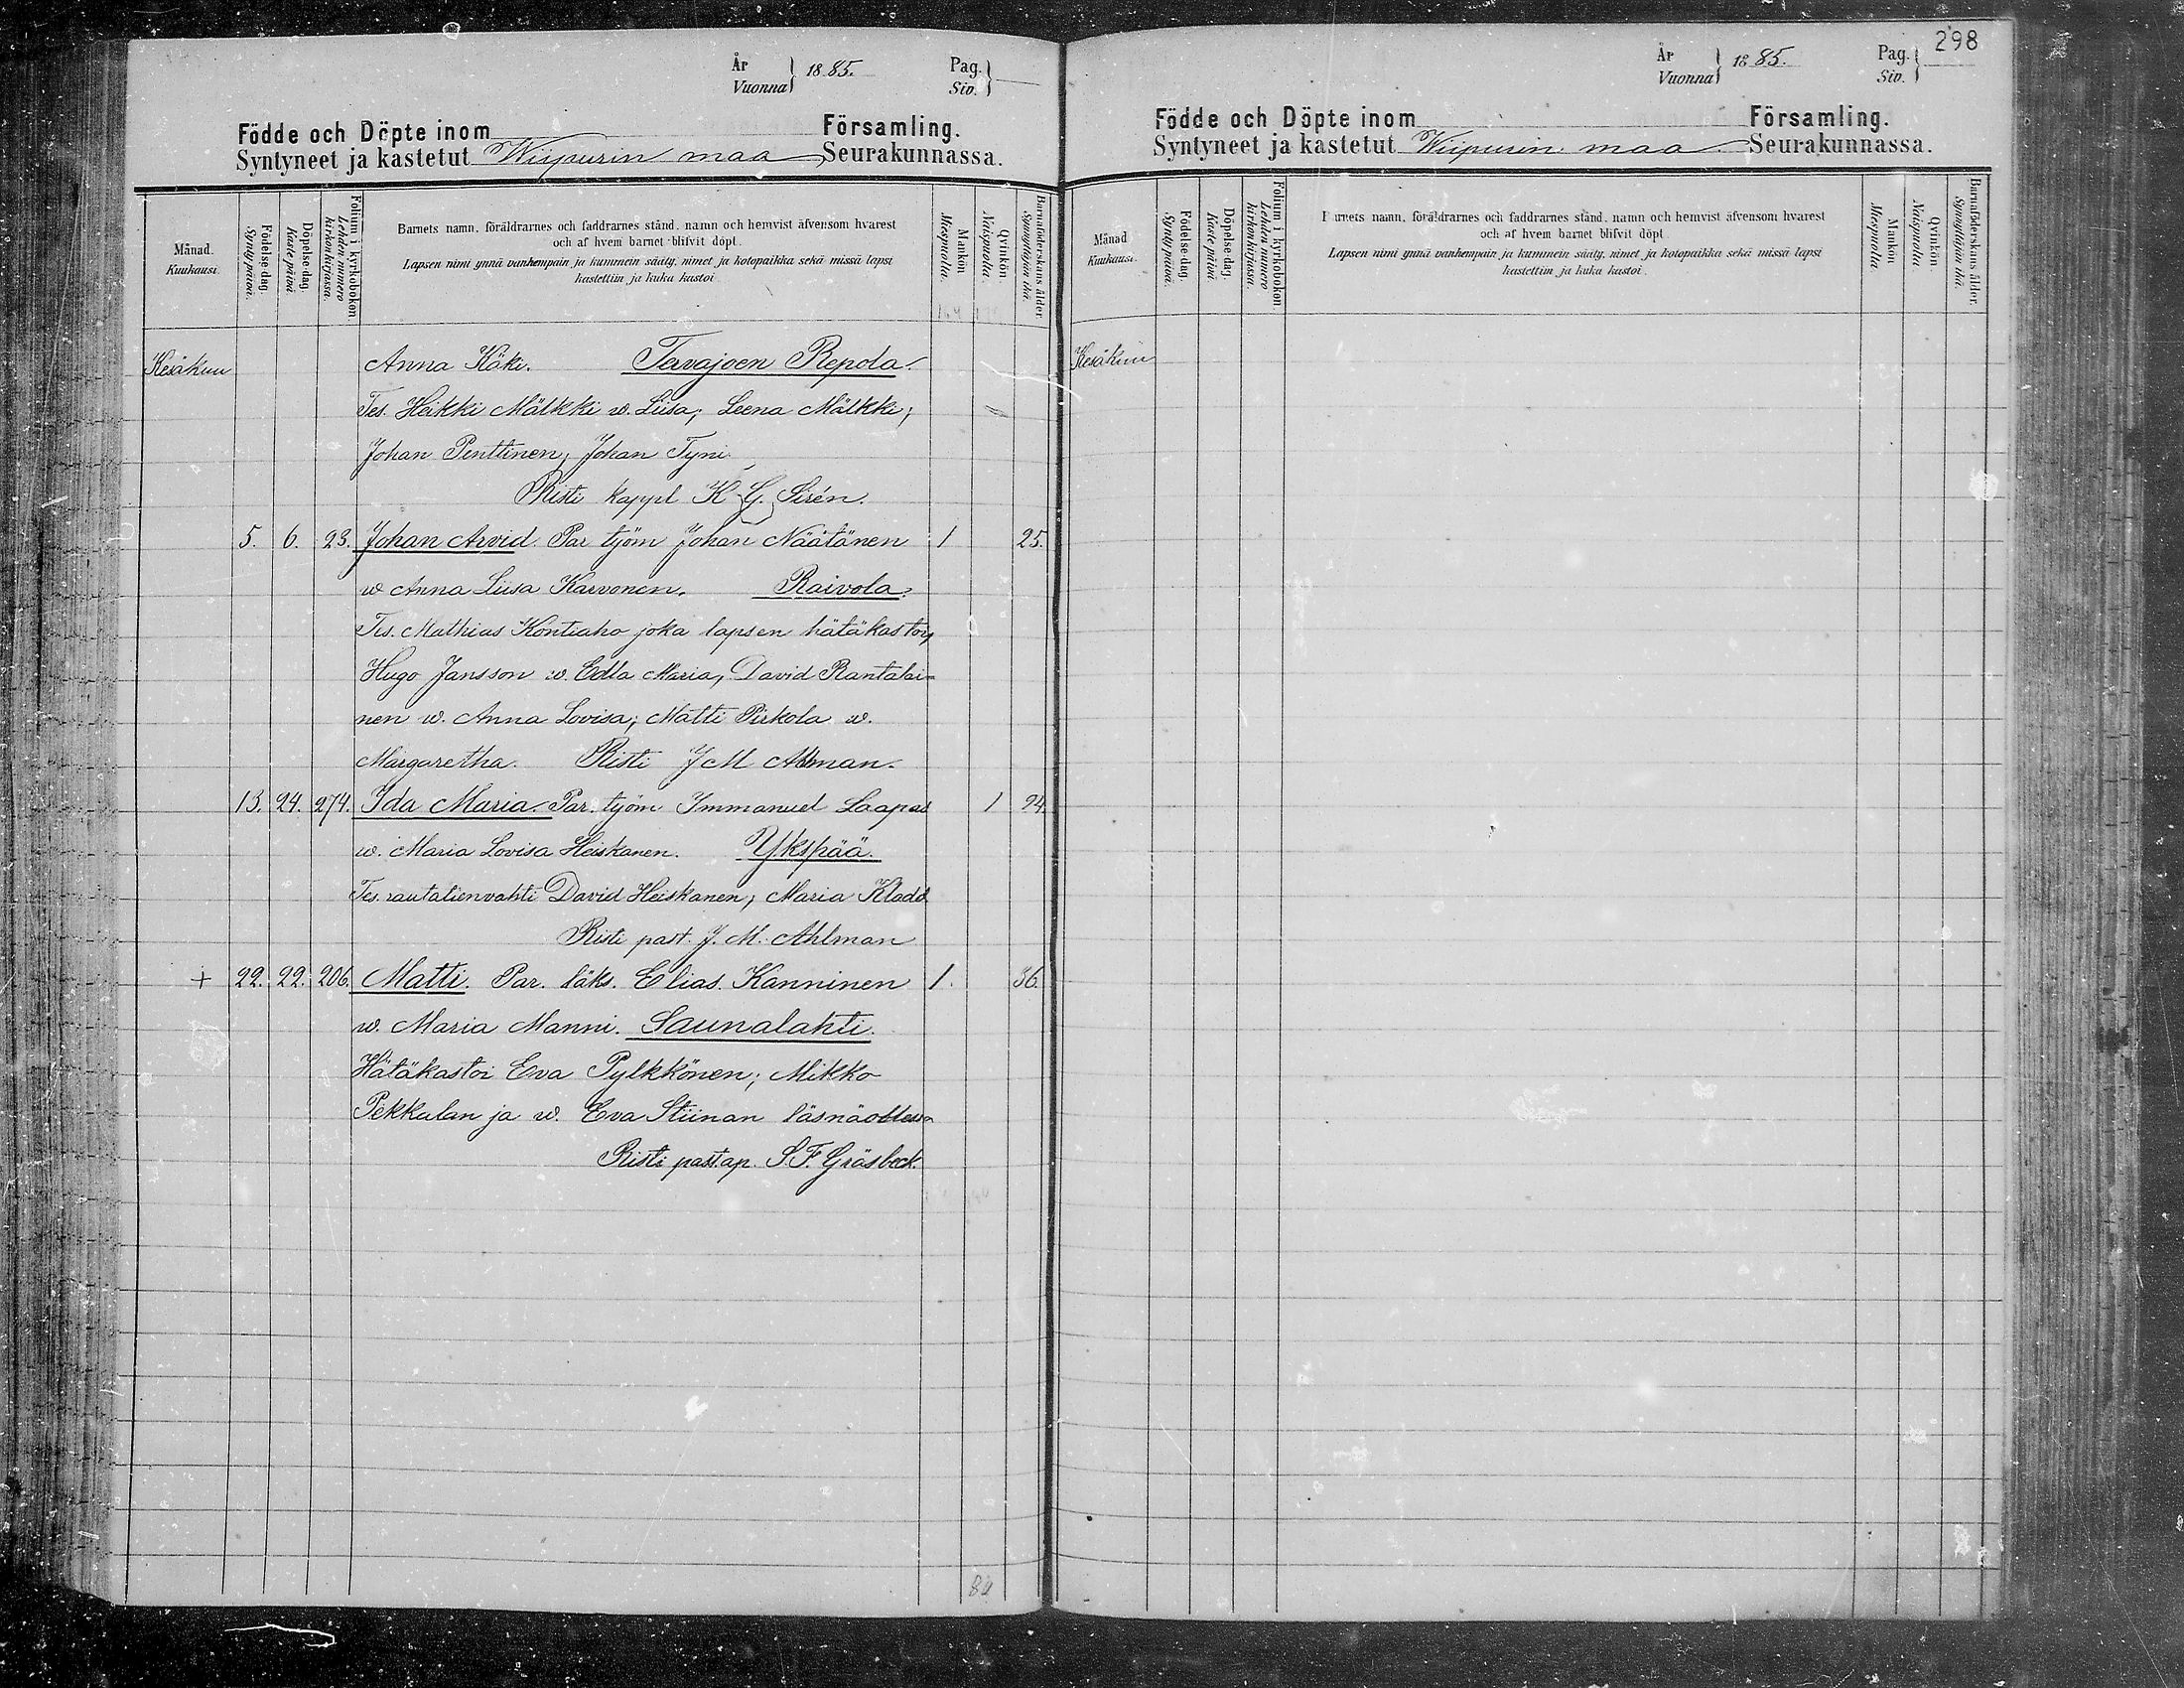 År
Vuonna } 1885.
Pag.
Siv. }
Födde och Döpte inom Församling.
Syntyneet ja kastetut Wiipurin maa Seurakunnassa.
Månad.
Kuukausi.
Födelse-dag.
Syntypäivä.
Döpelse-dag.
Kaste päivä
Folium i kyrkoboken
Lehden numero
kirkonkirjassa.
Barnets namn, föräldrarnes och faddrarnes stånd, namn och hemvist äfvensom hvarest
och af hvem barnet blifvit döpt.
Lapsen nimi ynnä vanhempain ja kummein sääty, nimet ja kotopaikka sekä missä lapsi
kastettiin ja kuka kastoi.
Mankön
Miespuolia.
Qvinkön.
Naispuolia.
Barnaföderskans ålder.
Synnyttäjän ikä.
Kesäkuu Anna Käki. Tervajoen Repola.
Tes. Heikki Mälkki w. Liisa; Leena Mälkki;
Johan Penttinen; Johan Tyni
Risti kappl K. G. Sirén.
5. 6. 23. Johan Arvid. Par työm Johan Näätänen 1 25.
w Anna Liisa Karvonen. Raivola.
Tes. Mathias Kontiaho joka lapsen hätäkastoi,
Hugo Jansson w. Edla Maria, David Rantalai-
nen w. Anna Lovisa; Matti Pirkola w.
Margaretha. Risti J M Ahlman.
13. 24. 274. Ida Maria. Par. työm Immanuel Laapas 1 24.
w. Maria Lovisa Heiskanen. Ykspää.
Tes. rautatienvahti David Heiskanen; Maria Kladd
Risti past. J. M. Ahlman
+ 22. 22. 206. Matti. Par. läks. Elias Kanninen 1. 36.
w. Maria Manni. Saunalahti.
Hätäkastoi Eva Pylkkönen; Mikko
Pekkalan ja w. Eva Stiinan läsnäollessa
Risti past.ap. S. F. Gräsbeck.
298
År
Vuonna } 1885.
Pag.
Siv. }
Födde och Döpte inom Församling.
Syntyneet ja kastetut Wiipurin maa Seurakunnassa.
Månad
Kuukausi.
Födelse-dag.
Syntypäivä.
Döpelse-dag.
Kaste päivä.
Folium i kyrkoboken.
Lehden numero
kirkonkirjassa.
Barnets namn, föräldrarnes och faddrarnes stånd, namn och hemvist äfvensom hvarest
och af hvem barnet blifvit döpt
Lapsen nimi ynnä vanhempain ja kummein sääty, nimet ja kotopaikka sekä missä lapsi
kastettiin ja kuka kastoi.
Mankön
Miespuolia.
Qvinkön.
Naispuolia.
Barnaföderskans ålder.
Synnyttäjän ikä.
Kesäkuu